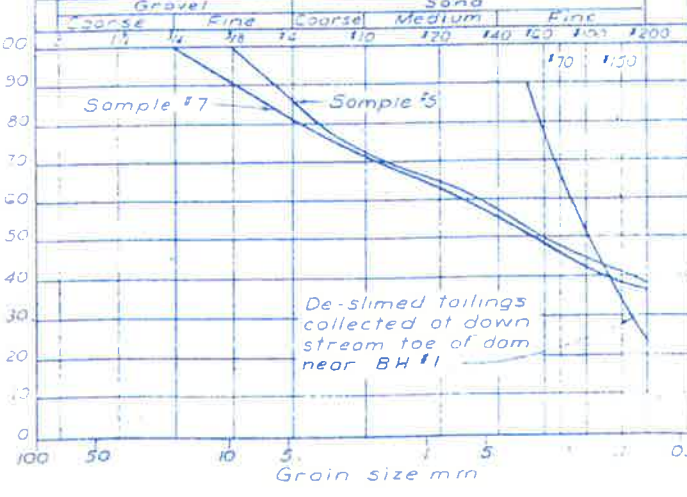 Gravel Sand
Coarse Fine Coarse Medium Fine
3/4 3/8 #4 #10 #20 #40 #60 #100 #200
#70 #150
90
80
70
60
50
40
30
20
10
0
Sample #7
Sample #5
De-slimed tailings
collected at down
stream toe of dam
near BH #1
100 50 10 5. 1. .5 .1
Grain size mm